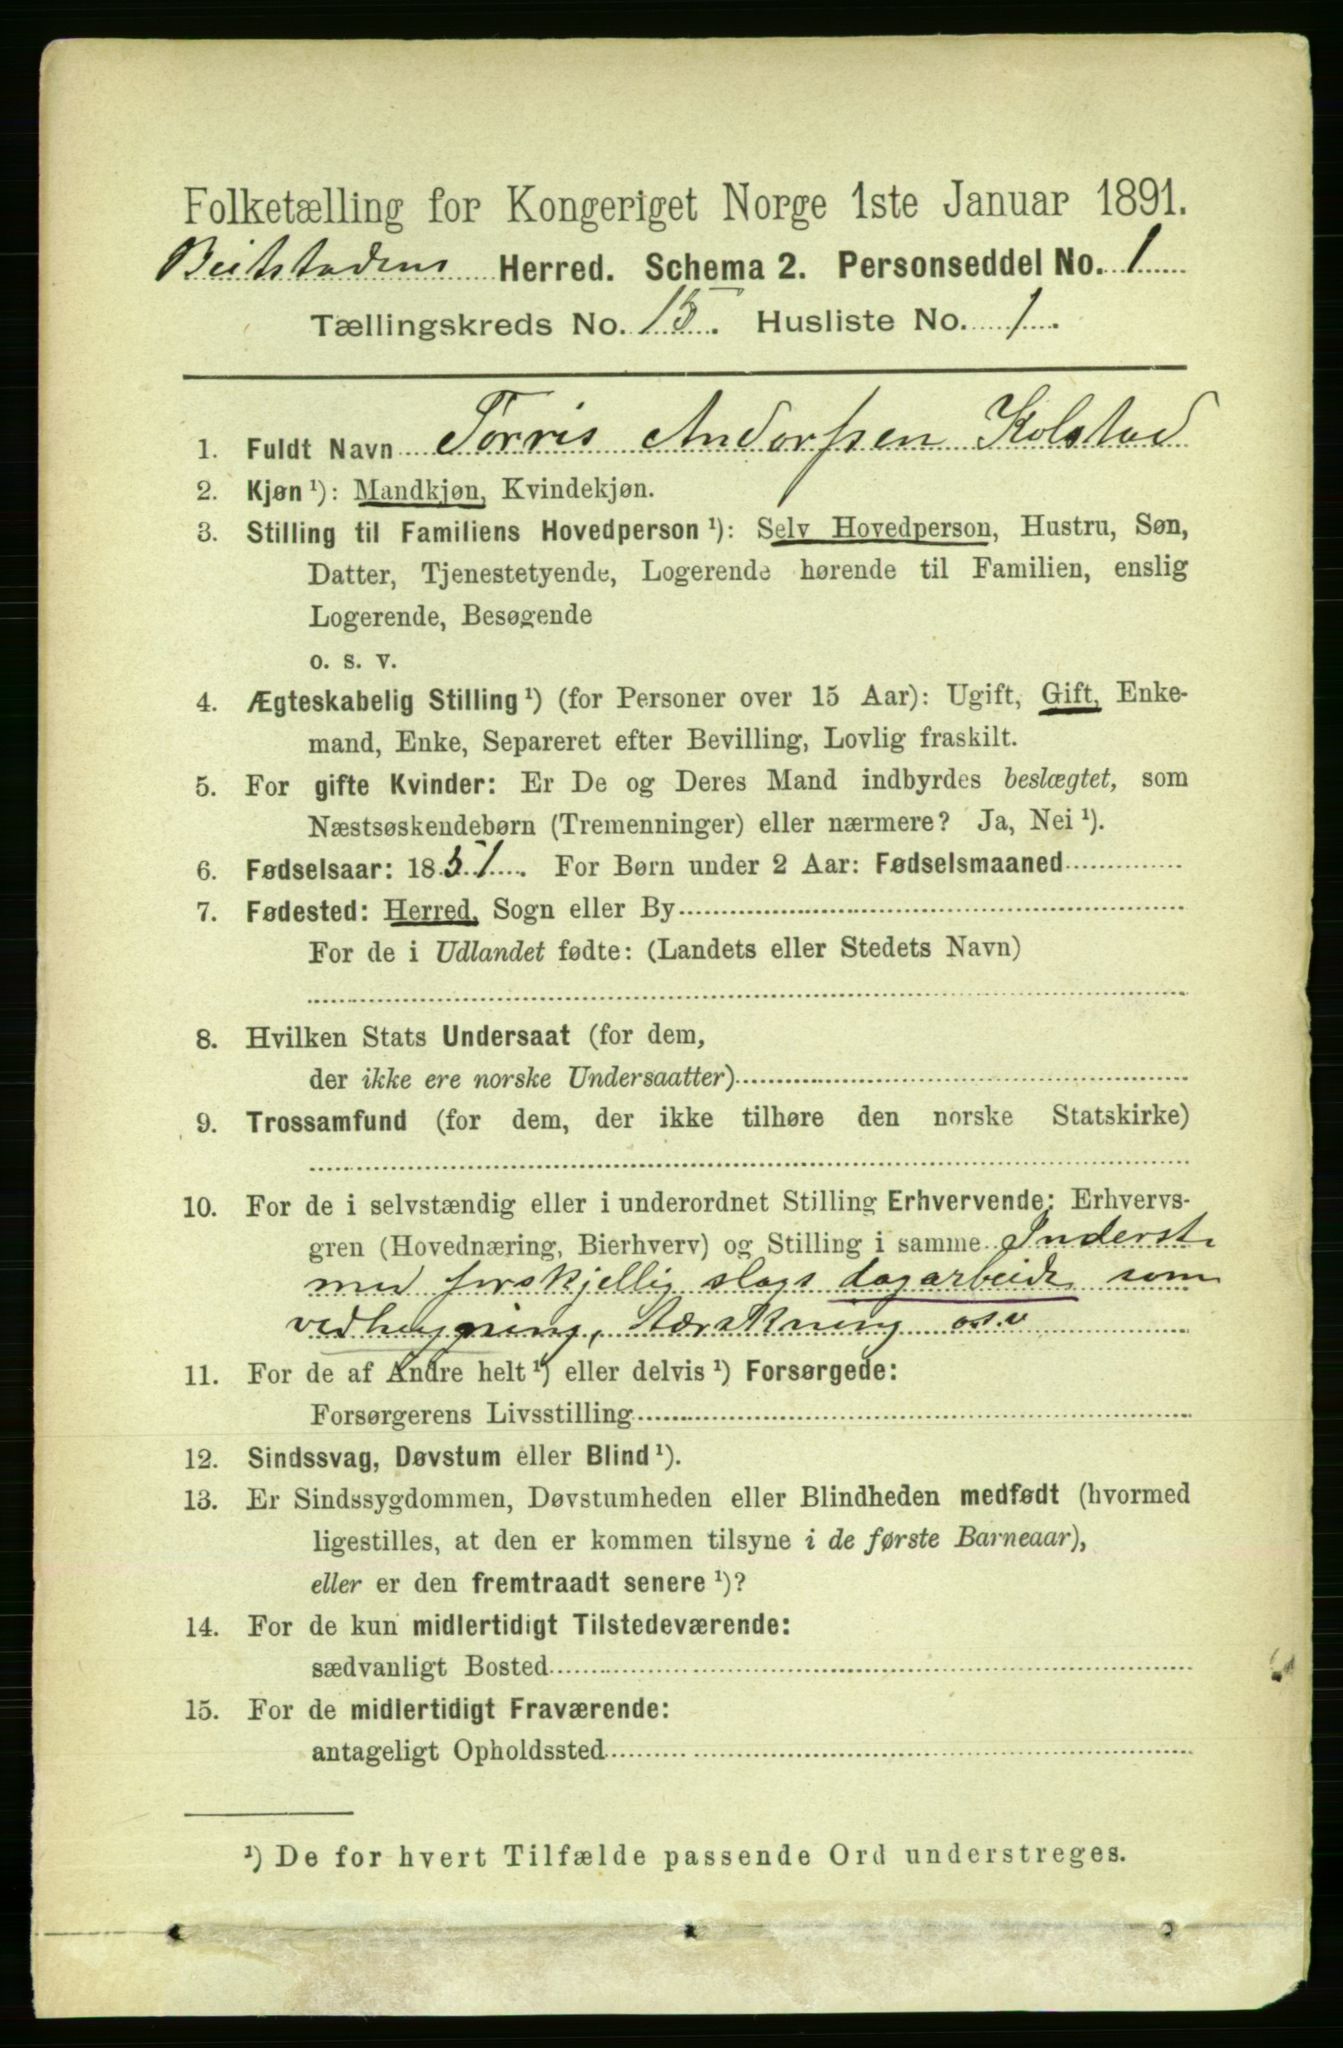 Folketælling for Kongeriget Norge 1ste Januar 1891.
Beitstadens Herred. Schema 2. Personseddel No. 1
Tællingskreds No. 15. Husliste No. 1.
1. Fuldt Navn Torris Andorssen Kolstad
2. Kjøn ¹): Mandkjøn, Kvindekjøn.
3. Stilling til Familiens Hovedperson ¹): Selv Hovedperson, Hustru, Søn,
Datter, Tjenestetyende, Logerende hørende til Familien, enslig
Logerende, Besøgende
o. s. v.
4. Ægteskabelig Stilling ¹) (for Personer over 15 Aar): Ugift, Gift, Enke-
mand, Enke, Separeret efter Bevilling, Lovlig fraskilt.
5. For gifte Kvinder: Er De og Deres Mand indbyrdes beslægtet, som
Næstsøskendebørn (Tremenninger) eller nærmere? Ja, Nei ¹).
6. Fødselsaar: 1851. For Børn under 2 Aar: Fødselsmaaned
7. Fødested: Herred, Sogn eller By
For de i Udlandet fødte: (Landets eller Stedets Navn)
8. Hvilken Stats Undersaat (for dem,
der ikke ere norske Undersaatter)
9. Trossamfund (for dem, der ikke tilhøre den norske Statskirke)
10. For de i selvstændig eller i underordnet Stilling Erhvervende: Erhvervs-
gren (Hovednæring, Bierhverv) og Stilling i samme Inderst.
med forskjellig slags dagarbeide som
vedhugning, tærskning o.s.v
11. For de af Andre helt ¹) eller delvis ¹) Forsørgede:
Forsørgerens Livsstilling
12. Sindssvag, Døvstum eller Blind ¹).
13. Er Sindssygdommen, Døvstumheden eller Blindheden medfødt (hvormed
ligestilles, at den er kommen tilsyne i de første Barneaar),
eller er den fremtraadt senere ¹)?
14. For de kun midlertidigt Tilstedeværende:
sædvanligt Bosted
15. For de midlertidigt Fraværende:
antageligt Opholdssted
¹) De for hvert Tilfælde passende Ord understreges.